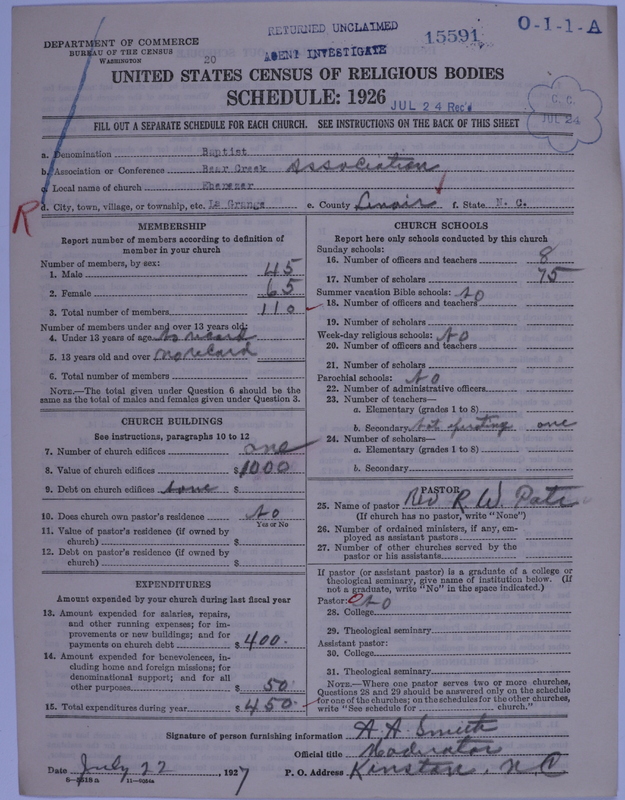 RETURNED UNCLAIMED
15591
O-1-1-A
DEPARTMENT OF COMMERCE
BUREAU OF THE CENSUS
WASHINGTON
20
AGENT INVESTIGATE
UNITED STATES CENSUS OF RELIGIOUS BODIES
SCHEDULE: 1926
JUL 24 Rec'd
C. C.
JUL 24
FILL OUT A SEPARATE SCHEDULE FOR EACH CHURCH. SEE INSTRUCTIONS ON THE BACK OF THIS SHEET
a. Denomination Baptist
b. Association or Conference Bear Creek Association
c. Local name of church Ebenezer
R
d. City, town, village, or township, etc. La Grange e. County Lenoir f. State N. C.
MEMBERSHIP
Report number of members according to definition of
member in your church
Number of members, by sex:
1. Male 45
2. Female 65
3. Total number of members 110
Number of members under and over 13 years old:
4. Under 13 years of age No record
5. 13 years old and over No record
6. Total number of members
NOTE.—The total given under Question 6 should be the
same as the total of males and females given under Question 3.
CHURCH BUILDINGS
See instructions, paragraphs 10 to 12
7. Number of church edifices one
8. Value of church edifices $1000
9. Debt on church edifices none $
10. Does church own pastor's residence No
Yes or No
11. Value of pastor's residence (if owned by
church) $
12. Debt on pastor's residence (if owned by
church) $
EXPENDITURES
Amount expended by your church during last fiscal year
13. Amount expended for salaries, repairs,
and other running expenses; for im-
provements or new buildings; and for
payments on church debt $ 400.
14. Amount expended for benevolences, in-
cluding home and foreign missions; for
denominational support; and for all
other purposes $ 50
15. Total expenditures during year $ 450
CHURCH SCHOOLS
Report here only schools conducted by this church
Sunday schools:
16. Number of officers and teachers 8
17. Number of scholars 75
Summer vacation Bible schools: No
18. Number of officers and teachers
19. Number of scholars
Week-day religious schools: No
20. Number of officers and teachers
21. Number of scholars
Parochial schools: No
22. Number of administrative officers
23. Number of teachers—
a. Elementary (grades 1 to 8)
b. Secondary Not operating one
24. Number of scholars—
a. Elementary (grades 1 to 8)
b. Secondary
PASTOR
25. Name of pastor Rev R. W. Pate
(If church has no pastor, write "None")
26. Number of ordained ministers, if any, em-
ployed as assistant pastors
27. Number of other churches served by the
pastor or his assistants
If pastor (or assistant pastor) is a graduate of a college or
theological seminary, give name of institution below. (If
not a graduate, write "No" in the space indicated.)
Pastor: No
28. College
29. Theological seminary
Assistant pastor:
30. College
31. Theological seminary
NOTE.—Where one pastor serves two or more churches,
Questions 28 and 29 should be answered only on the schedule
for one of the churches; on the schedules for the other churches,
write "See schedule for church."
Signature of person furnishing information A. A. Smith
Official title Moderator
Date July 22, 1927 P. O. Address Kinston, N C